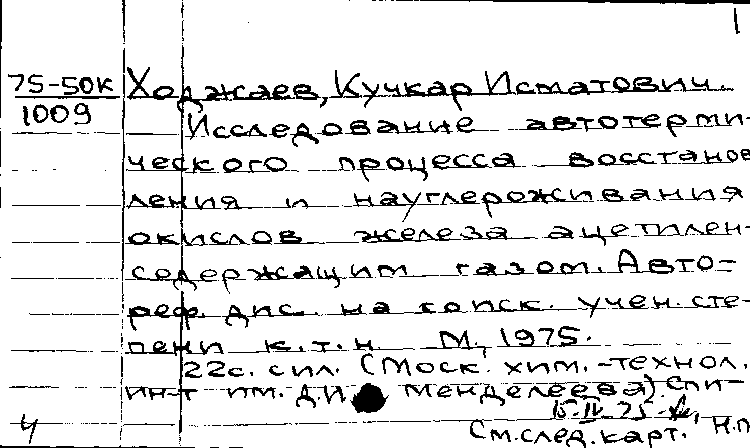 1
75-50К
1009
Ходжаев, Кучкар Исматович.
Исследование автотерми-
ческого процесса восстанов
ления и науглероживания
окислов железа ацетилен-
содержащим газом. Авто-
реф. дис. на соиск. учен. сте-
пени к.т.н. М., 1975.
22с. с ил. (Моск. хим.-технол.
ин-т им. Д.И. Менделеева). Спи-
15.IV.75-
4 См. след. карт. Н.п